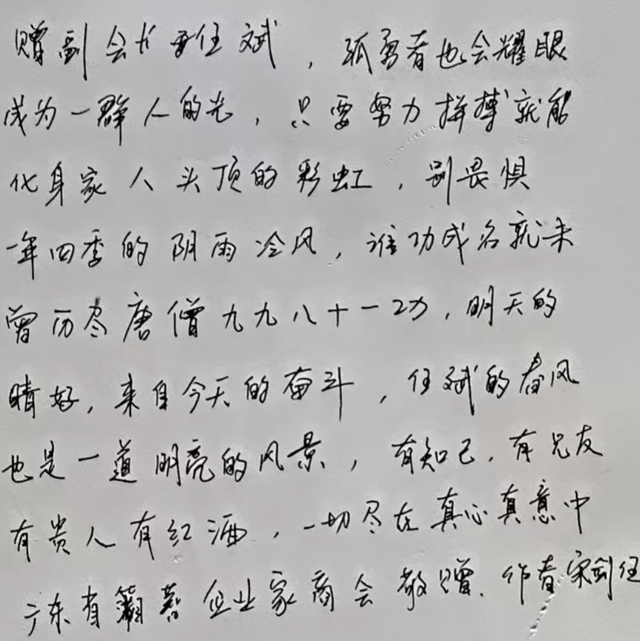 赠副会长任斌，孤勇者也会耀眼
成为一群人的光，只要努力拼搏就能
化身家人头顶的彩虹，别畏惧
一年四季的阴雨冷风，谁功成名就未
曾历尽唐僧九九八十一功，明天的
晴好，来自今天的奋斗，任斌的春风
也是一道明亮的风景，有知己，有兄友
有贵人有红酒，一切尽在真心真意中
广东省企业家商会敬赠．作者宋剑任